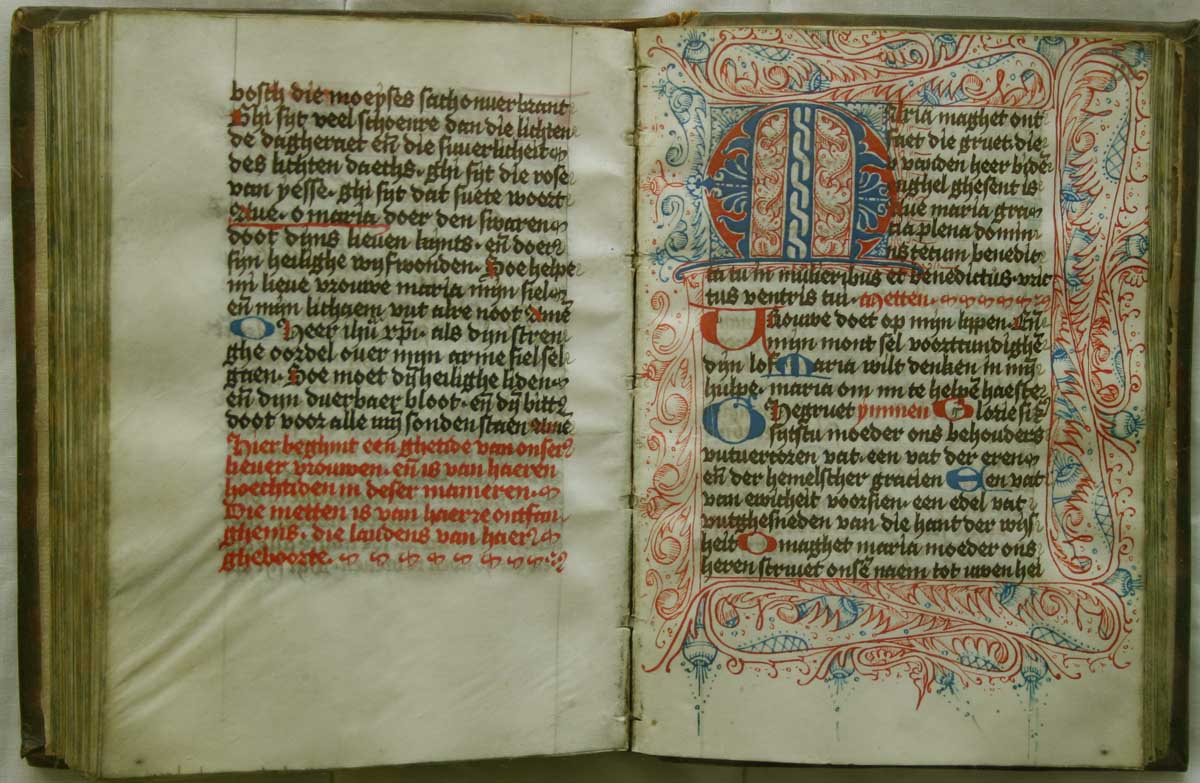 bosch die moepses sach onverbrant
Ghi sijt veel schoenre dan die lichten
de dagheraet eñ die suverlicheit
des lichten daechs. ghi sijt die rose
van yesse. ghi sijt dat suete woert
Aue. o maria doer den swaren
doot dijns lieuen kijnts. eñ doer
sijn heilighe vijf wonden. Soe helpe
mi lieue vrouwe maria mijn siel
eñ mijn lichaem vut alre noot Amē
O Heer ihū xp̄i. als dijn stren
ghe oordel ouer mijn arme siel sel
gaen. Soe moet dij̄ heilighe liden
eñ dijn duerbaer bloet. eñ dij̄ bittr̄
doot voor alle mij̄ sonden staen Amē
Hier beghint een ghetide van onser
lieuer vrouwen. eñ is van haeren
hoechtiden in deser manieren.
Die metten is van haerre ontfan
ghenis. die laudens van haer
gheboorte.
Maria maghet ont
faet die gruet. die
v vanden heer bidē
enghel ghesent is
Aue maria gra
cia plena domin
us tecum benedic
ta tu in mulieribus et benedictus. vruc
tus ventris tui. Metten.
Vrouwe doet op mijn lippen. Eñ
mijn mont sel voort cundighē
dijn lof Maria wilt denken in mij̄
hulpe. maria om mi te helpē haeste
Ghegruet ymmen Glorie si
Sijtstu moeder ons behouders
vutuercoren vat. een vat der eren
eñ der hemelscher gracien Een vat
van ewicheit voorsien. een edel vat
vutghesneden van die hant der wijs
heit O maghet maria moeder ons
heren scrivet onsē naem tot uwen hei